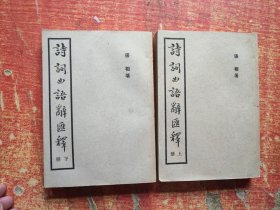 張相著
詩詞曲語辭匯釋
下冊
張相著
詩詞曲語辭匯釋
上冊